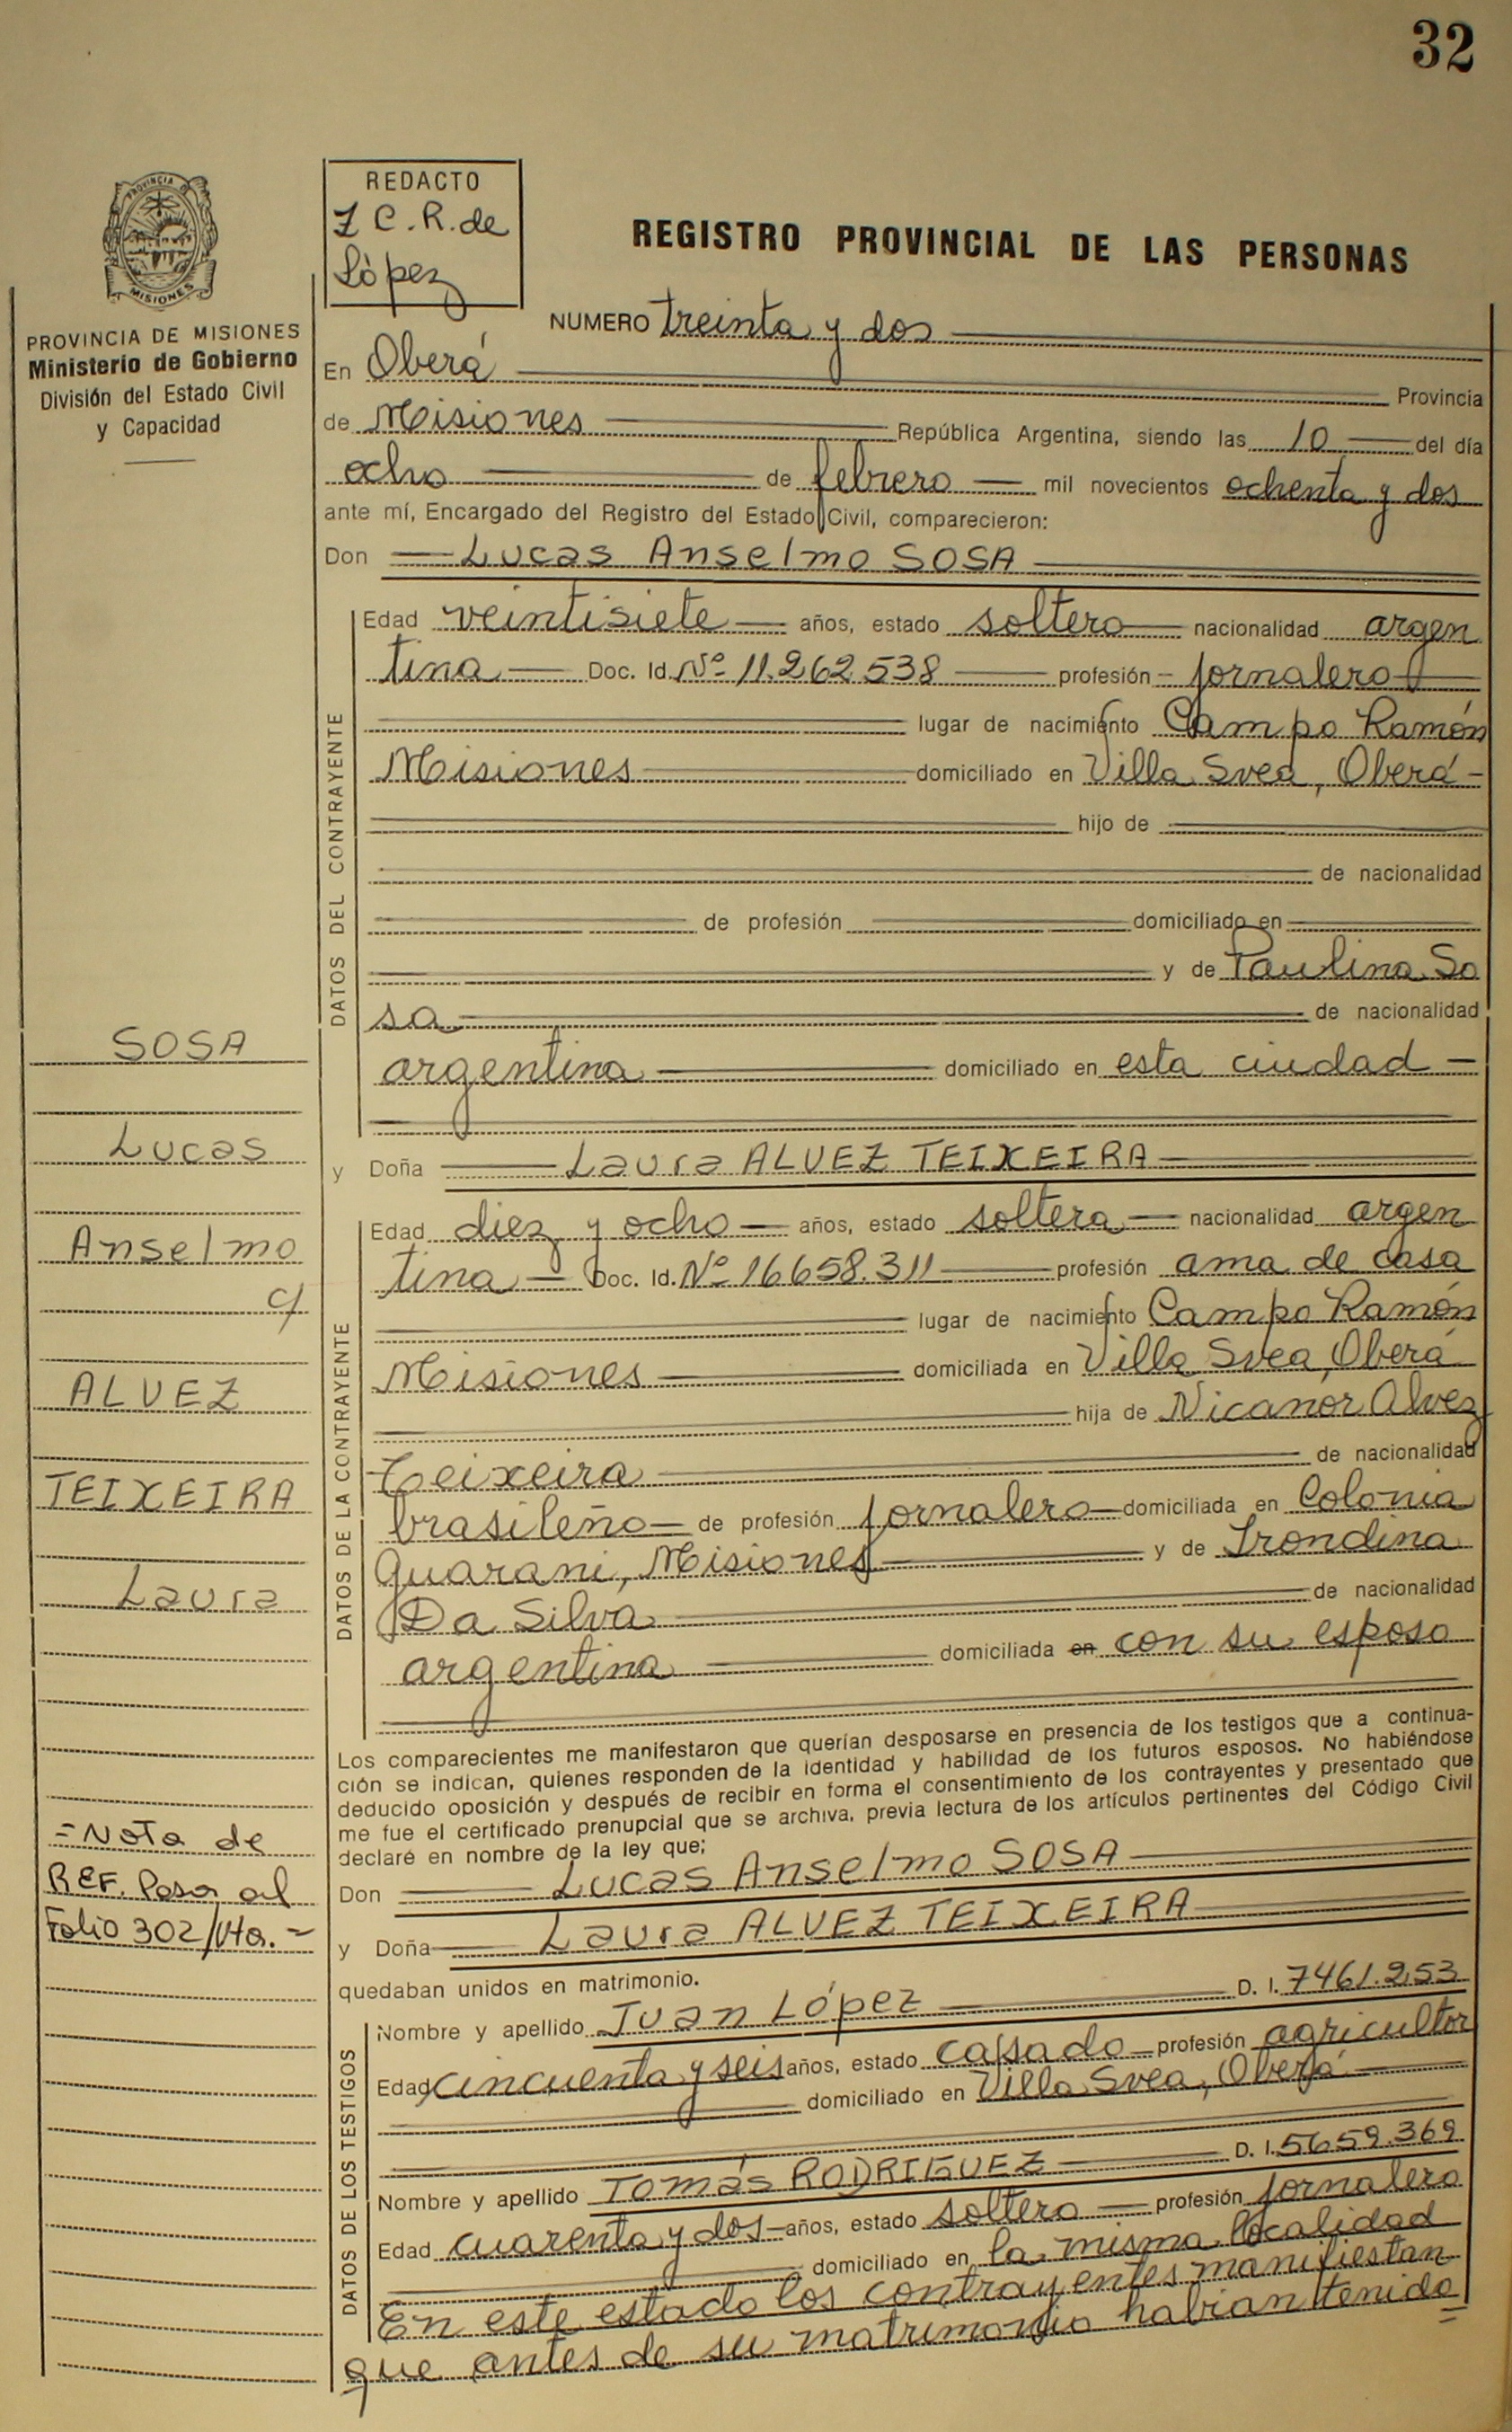 32
PROVINCIA DE
MISIONES
PROVINCIA DE MISIONES
Ministerio de Gobierno
División del Estado Civil
y Capacidad
REDACTO
Z C. R. de
López
REGISTRO PROVINCIAL DE LAS PERSONAS
NUMERO treinta y dos
En Oberá Provincia
de Misiones República Argentina, siendo las 10 del día
ocho de febrero mil novecientos ochenta y dos
ante mí, Encargado del Registro del Estado Civil, comparecieron:
Don Lucas Anselmo SOSA
DATOS DEL CONTRAYENTE
Edad veintisiete años, estado soltero nacionalidad argen
tina Doc. Id. Nº 11.262.538 profesión jornalero
lugar de nacimiento Campo Ramón
Misiones domiciliado en Villa Svea, Oberá
hijo de
de nacionalidad
de profesión domiciliado en
y de Paulina So
sa de nacionalidad
argentina domiciliado en esta ciudad
y Doña Laura ALVEZ TEIXEIRA
DATOS DE LA CONTRAYENTE
Edad diez y ocho años, estado soltera nacionalidad argen
tina Doc. Id. Nº 16658.311 profesión ama de casa
lugar de nacimiento Campo Ramón
Misiones domiciliada en Villa Svea, Oberá
hija de Nicanor Alvez
Teixeira de nacionalidad
brasileño de profesión jornalero domiciliada en Colonia
Guarani, Misiones y de Irondina
Da Silva de nacionalidad
argentina domiciliada en con su esposo
Los comparecientes me manifestaron que querían desposarse en presencia de los testigos que a continua-
ción se indican, quienes responden de la identidad y habilidad de los futuros esposos. No habiéndose
deducido oposición y después de recibir en forma el consentimiento de los contrayentes y presentado que
me fue el certificado prenupcial que se archiva, previa lectura de los artículos pertinentes del Código Civil
declaré en nombre de la ley que;
Don Lucas Anselmo SOSA
y Doña Laura ALVEZ TEIXEIRA
quedaban unidos en matrimonio.
DATOS DE LOS TESTIGOS
Nombre y apellido Juan López D. I. 7461.253
Edad cincuenta y seis años, estado casado profesión agricultor
domiciliado en Villa Svea, Oberá
Nombre y apellido Tomás RODRIGUEZ D. I. 5659.369
Edad cuarenta y dos años, estado soltero profesión jornalero
domiciliado en la misma localidad
En este estado los contrayentes manifiestan
que antes de su matrimonio habian tenido
SOSA
Lucas
Anselmo
c/
ALVEZ
TEIXEIRA
Laura
=Nota de
REF. Pasa al
Folio 302/Vta.-